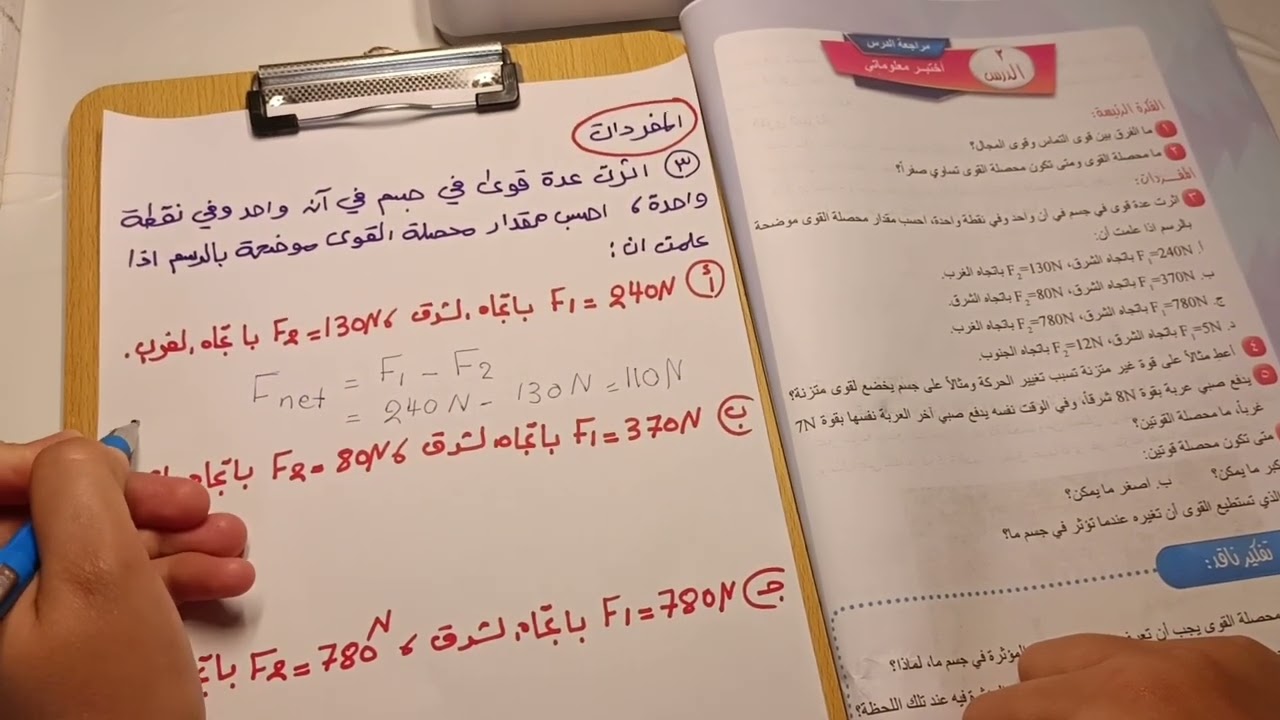 المفردات
٣ اثرت عدة قوى في جسم في آن واحد وفي نقطة
واحدة، احسب مقدار محصلة القوى موضحة بالرسم اذا
علمت ان:
أ F1 = 240N باتجاه الشرق، F2 = 130N باتجاه الغرب.
Fnet = F1 - F2
= 240N - 130N = 110N
ب F1 = 370N باتجاه الشرق، F2 = 80N باتجاه
جـ F1 = 780N باتجاه الشرق، F2 = 780N
مراجعة الدرس
اختبر معلوماتي
الدرس ٢
الفكرة الرئيسة:
١ ما الفرق بين قوى التماس وقوى المجال؟
٢ ما محصلة القوى ومتى تكون محصلة القوى تساوي صفراً؟
المفردات:
٣ اثرت عدة قوى في جسم في آن واحد وفي نقطة واحدة، احسب مقدار محصلة القوى موضحة
بالرسم اذا علمت أن:
أ. F1=240N باتجاه الشرق، F2=130N باتجاه الغرب.
ب. F1=370N باتجاه الشرق، F2=80N باتجاه الشرق.
ج. F1=780N باتجاه الشرق، F2=780N باتجاه الغرب.
د. F1=5N باتجاه الشرق، F2=12N باتجاه الجنوب.
٤ أعط مثالاً على قوة غير متزنة تسبب تغيير الحركة ومثالاً على جسم يخضع لقوى متزنة؟
٥ يدفع صبي عربة بقوة 8N شرقاً، وفي الوقت نفسه يدفع صبي آخر العربة نفسها بقوة 7N
غرباً، ما محصلة القوتين؟
متى تكون محصلة قوتين:
كبر ما يمكن؟ ب. اصغر ما يمكن؟
الذي تستطيع القوى أن تغيره عندما تؤثر في جسم ما؟
تفكير ناقد:
محصلة القوى يجب أن المؤثرة في جسم ما، لماذا؟
فيه عند تلك اللحظة؟